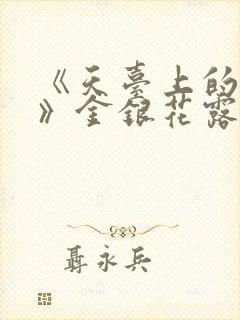 《天臺上的
》金銀花露
聶永兵